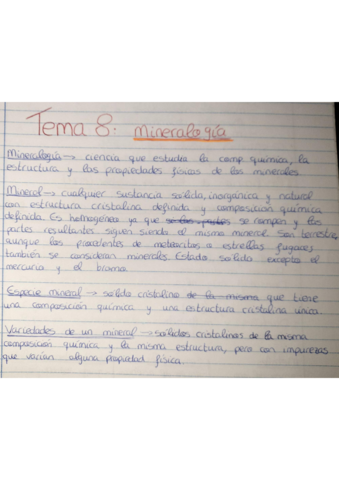 Tema 8: Mineralogía
Mineralogía → ciencia que estudia la comp. química, la
estructura y las propiedades físicas de los minerales.
Mineral → cualquier sustancia sólida, inorgánica y natural
con estructura cristalina definida y composición química
definida. Es homogénea ya que se rompen y las
partes resultantes siguen siendo el mismo mineral. Son terrestres
aunque los procedentes de meteoritos o estrellas fugaces
también se consideran minerales. Estado sólido excepto el
mercurio y el bromo.
Especie mineral → sólido cristalino de la misma que tiene
una composición química y una estructura cristalina única.
Variedades de un mineral → sólidos cristalinos de la misma
composición química y la misma estructura, pero con impurezas
que varían alguna propiedad física.